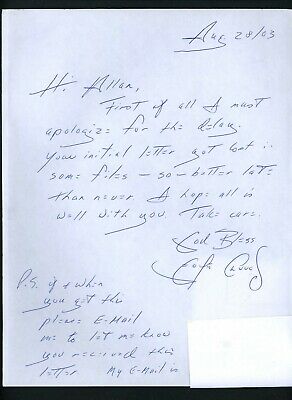 Aug 28/03
Hi Allan,
First of all I must
apologize for the delay.
Your initial letter got lost in
some files - so - better late
than never. I hope all is
well with you. Take care.
God Bless
P.S. if & when
you get this
please E-Mail
me to let me know
you received this
letter My E-Mail is